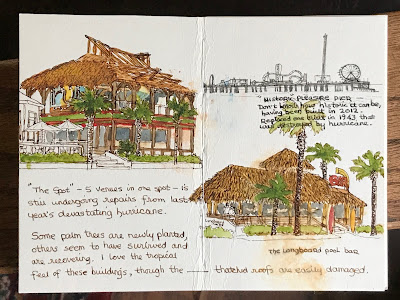 "The Spot" - 5 venues in one spot - is
still undergoing repairs from last
year's devastating hurricane.
Some palm trees are newly planted,
others seem to have survived and
are recovering. I love the tropical
feel of these buildings, though the —— thatched roofs are easily damaged.
"Historic Pleasure Pier -
Don't know how historic it can be,
having been built in 2012.
Replaced one built in 1943 that
was destroyed by hurricane.
The Longboard pool bar